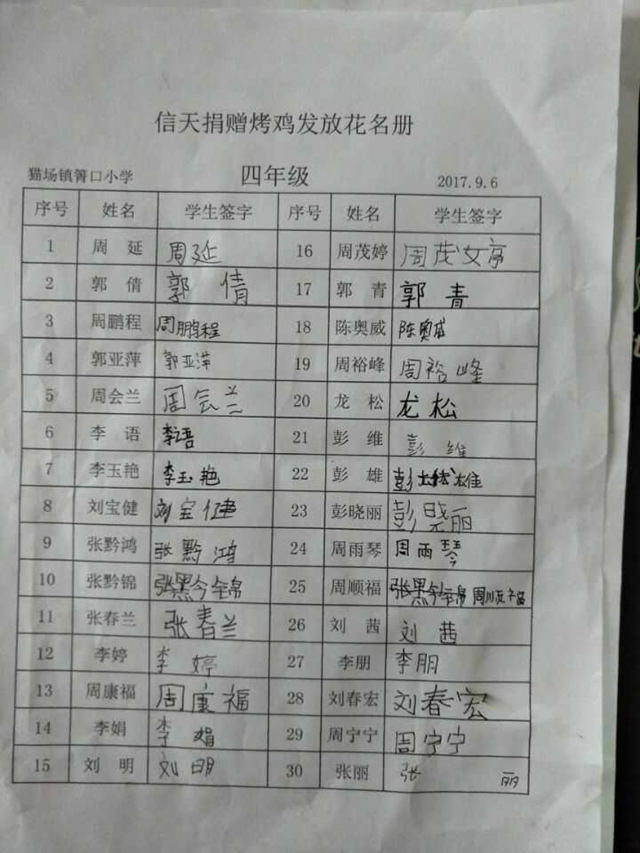 信天捐赠烤鸡发放花名册
猫场镇箐口小学 四年级 2017.9.6
序号 姓名 学生签字 序号 姓名 学生签字
1 周延 周延 16 周茂婷 周茂婷
2 郭倩 郭倩 17 郭青 郭青
3 周鹏程 周鹏程 18 陈奥威 陈奥威
4 郭亚萍 郭亚萍 19 周裕峰 周裕峰
5 周会兰 周会兰 20 龙松 龙松
6 李语 李语 21 彭维 彭维
7 李玉艳 李玉艳 22 彭雄 彭雄
8 刘宝健 刘宝健 23 彭晓丽 彭晓丽
9 张黔鸿 张黔鸿 24 周雨琴 周雨琴
10 张黔锦 张黔锦 25 周顺福 张黔锦 周顺福
11 张春兰 张春兰 26 刘茜 刘茜
12 李婷 李婷 27 李朋 李朋
13 周康福 周康福 28 刘春宏 刘春宏
14 李娟 李娟 29 周宁宁 周宁宁
15 刘明 刘明 30 张丽 张丽